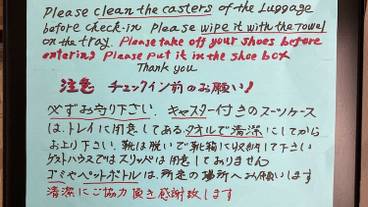 Please clean the casters of the Luggage
before check-in Please wipe it with the Towel
on the tray. Please take off your shoes before
entering Please put it in the shoe box
Thank you
注意 チェックイン前のお願い!
必ずお守り下さい. キャスター付きのスーツケース
は、トレイに用意してあるタオルで清潔にしてから
お上り下さい. 靴は脱いで靴箱に収納して下さい
ゲストハウスではスリッパは用意しておりません
ゴミやペットボトルは、所定の場所へお願いします
清潔にご協力頂き感謝致します